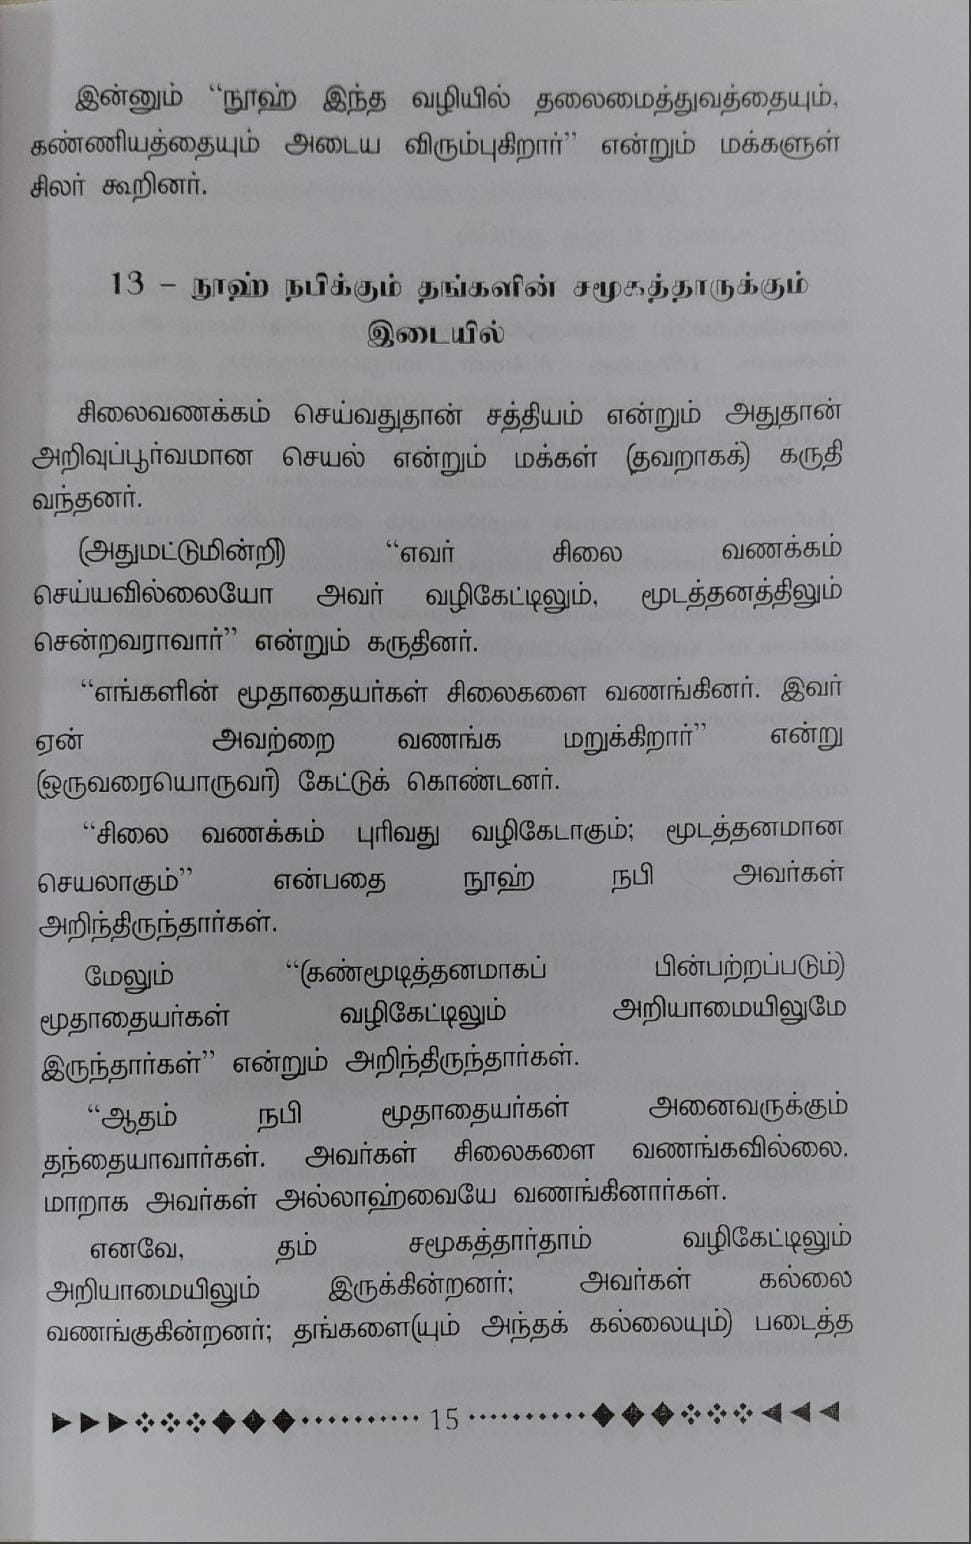 இன்னும் “நூஹ் இந்த வழியில் தலைமைத்துவத்தையும்,
கண்ணியத்தையும் அடைய விரும்புகிறார்” என்றும் மக்களுள்
சிலர் கூறினர்.
13 – நூஹ் நபிக்கும் தங்களின் சமூகத்தாருக்கும்
இடையில்
சிலைவணக்கம் செய்வதுதான் சத்தியம் என்றும் அதுதான்
அறிவுப்பூர்வமான செயல் என்றும் மக்கள் (தவறாகக்) கருதி
வந்தனர்.
(அதுமட்டுமின்றி) “எவர் சிலை வணக்கம்
செய்யவில்லையோ அவர் வழிகேட்டிலும், மூடத்தனத்திலும்
சென்றவராவார்” என்றும் கருதினர்.
“எங்களின் மூதாதையர்கள் சிலைகளை வணங்கினர். இவர்
ஏன் அவற்றை வணங்க மறுக்கிறார்” என்று
(ஒருவரையொருவர்) கேட்டுக் கொண்டனர்.
“சிலை வணக்கம் புரிவது வழிகேடாகும்; மூடத்தனமான
செயலாகும்” என்பதை நூஹ் நபி அவர்கள்
அறிந்திருந்தார்கள்.
மேலும் “(கண்மூடித்தனமாகப் பின்பற்றப்படும்)
மூதாதையர்கள் வழிகேட்டிலும் அறியாமையிலுமே
இருந்தார்கள்” என்றும் அறிந்திருந்தார்கள்.
“ஆதம் நபி மூதாதையர்கள் அனைவருக்கும்
தந்தையாவார்கள். அவர்கள் சிலைகளை வணங்கவில்லை.
மாறாக அவர்கள் அல்லாஹ்வையே வணங்கினார்கள்.
எனவே, தம் சமூகத்தார்தாம் வழிகேட்டிலும்
அறியாமையிலும் இருக்கின்றனர்; அவர்கள் கல்லை
வணங்குகின்றனர்; தங்களை(யும் அந்தக் கல்லையும்) படைத்த
15